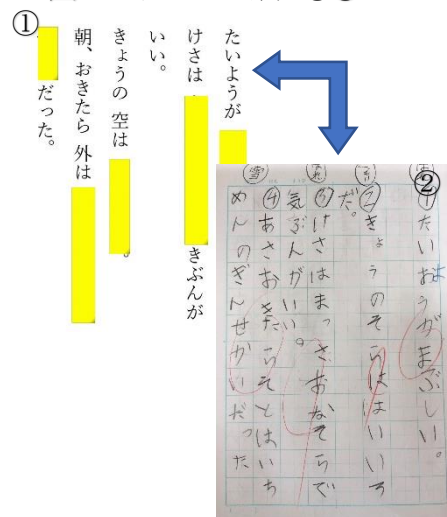 ①
たいようが
けさは きぶんが
いい。
きょうの 空は 。
朝、おきたら 外は
だった。
②
①たいおうがまぶしい。
よ
②きょうのそらははいいろ
だ。
③けさはまっさおなそらで
気ぶんがいい。
雪
④あさおきたらそとはいち
めんのぎんせかいだった